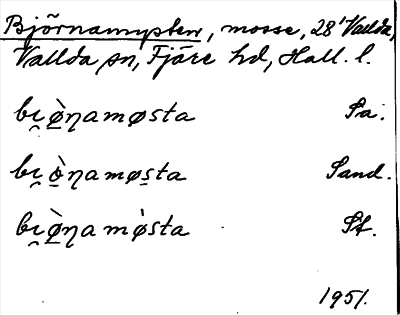 Björnamysten, mosse, 28' Vallda,
Vallda sn, Fjäre hd, Hall. l.
bɪ̯ø̠̀ŋamøsta Sa.
bɪ̯ò̠ŋamøs̠ta Sand.
bɪ̯ø̠̀ŋamǿsta St.
1951.